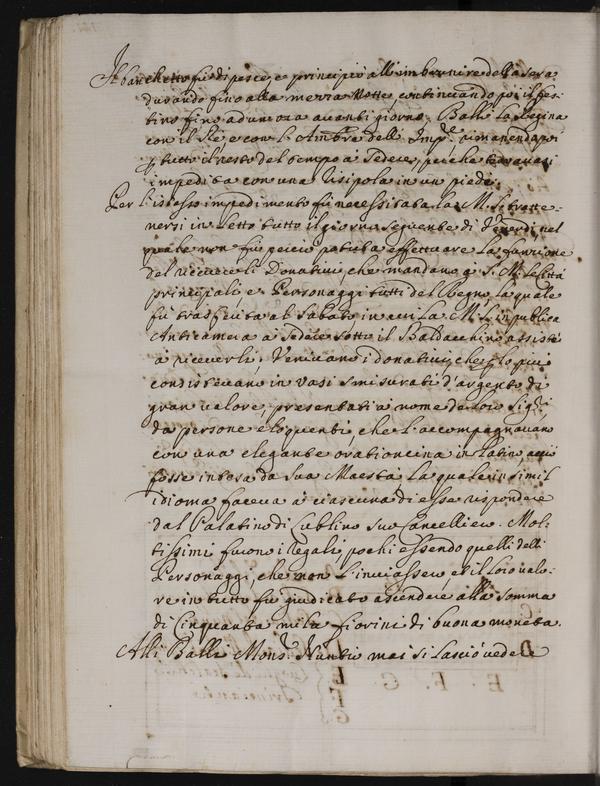 Il banchetto fù di pesce, e principiò all'imbrunire della sera
durando fino alla mezza Notte, continuando poi il fes-
tino fino ad un'ora avanti giorno. Ballò la Regina
con il Rè, e con l'Ambre dell' Impre rimanendo poi
p tutto il resto del tempo à sedere, perche trovavasi
impedita con una risipola in un piede.
Per l'istesso impedimento fù necessitata la M. S. tratte-
nersi in letto tutto il giorno seguente di Venerdì nel
quale non fù perciò potuta effettuare la funzione
del ricever li Donativi, che mandano à S. M. le Città
principali, e Personaggi tutti del Regno, la quale
fù trasferita al Sabato, in cui La M. S. in publica
Anticamera à sedere sotto il Baldacchino assisté
à riceverli, Venivano i donativi, che p lo più
consistevano in vasi smisurati d'argento di
gran valore, presentati à nome de loro Sigri
da persone eloquenti, che l'accompagnavano
con una elegante orationcina in latino acciò
fosse intesa da Sua Maestà la quale in simil
idioma faceva à ciascuna di esse rispondere
dal Palatino di Lublino suo Cancelliere. Mol-
tissimi furono i regali, pochi essendo quelli delli
Personaggi, che non l'inviassero et il loro valo-
re in tutto fù giudicato ascendere alla somma
di Cinquanta mila fiorini di buona moneta.
Alli Balli Monsr Nuntio mai si lasciò vedere